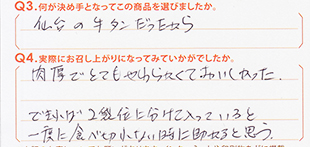 Q3.何が決め手となってこの商品を選びましたか。
仙台の牛タンだったから
Q4.実際にお召し上がりになってみていかがでしたか。
肉厚でとてもやわらかくておいしかった。
できれば2袋位に分けて入っていると
一度に食べ切れない時に助かると思う。